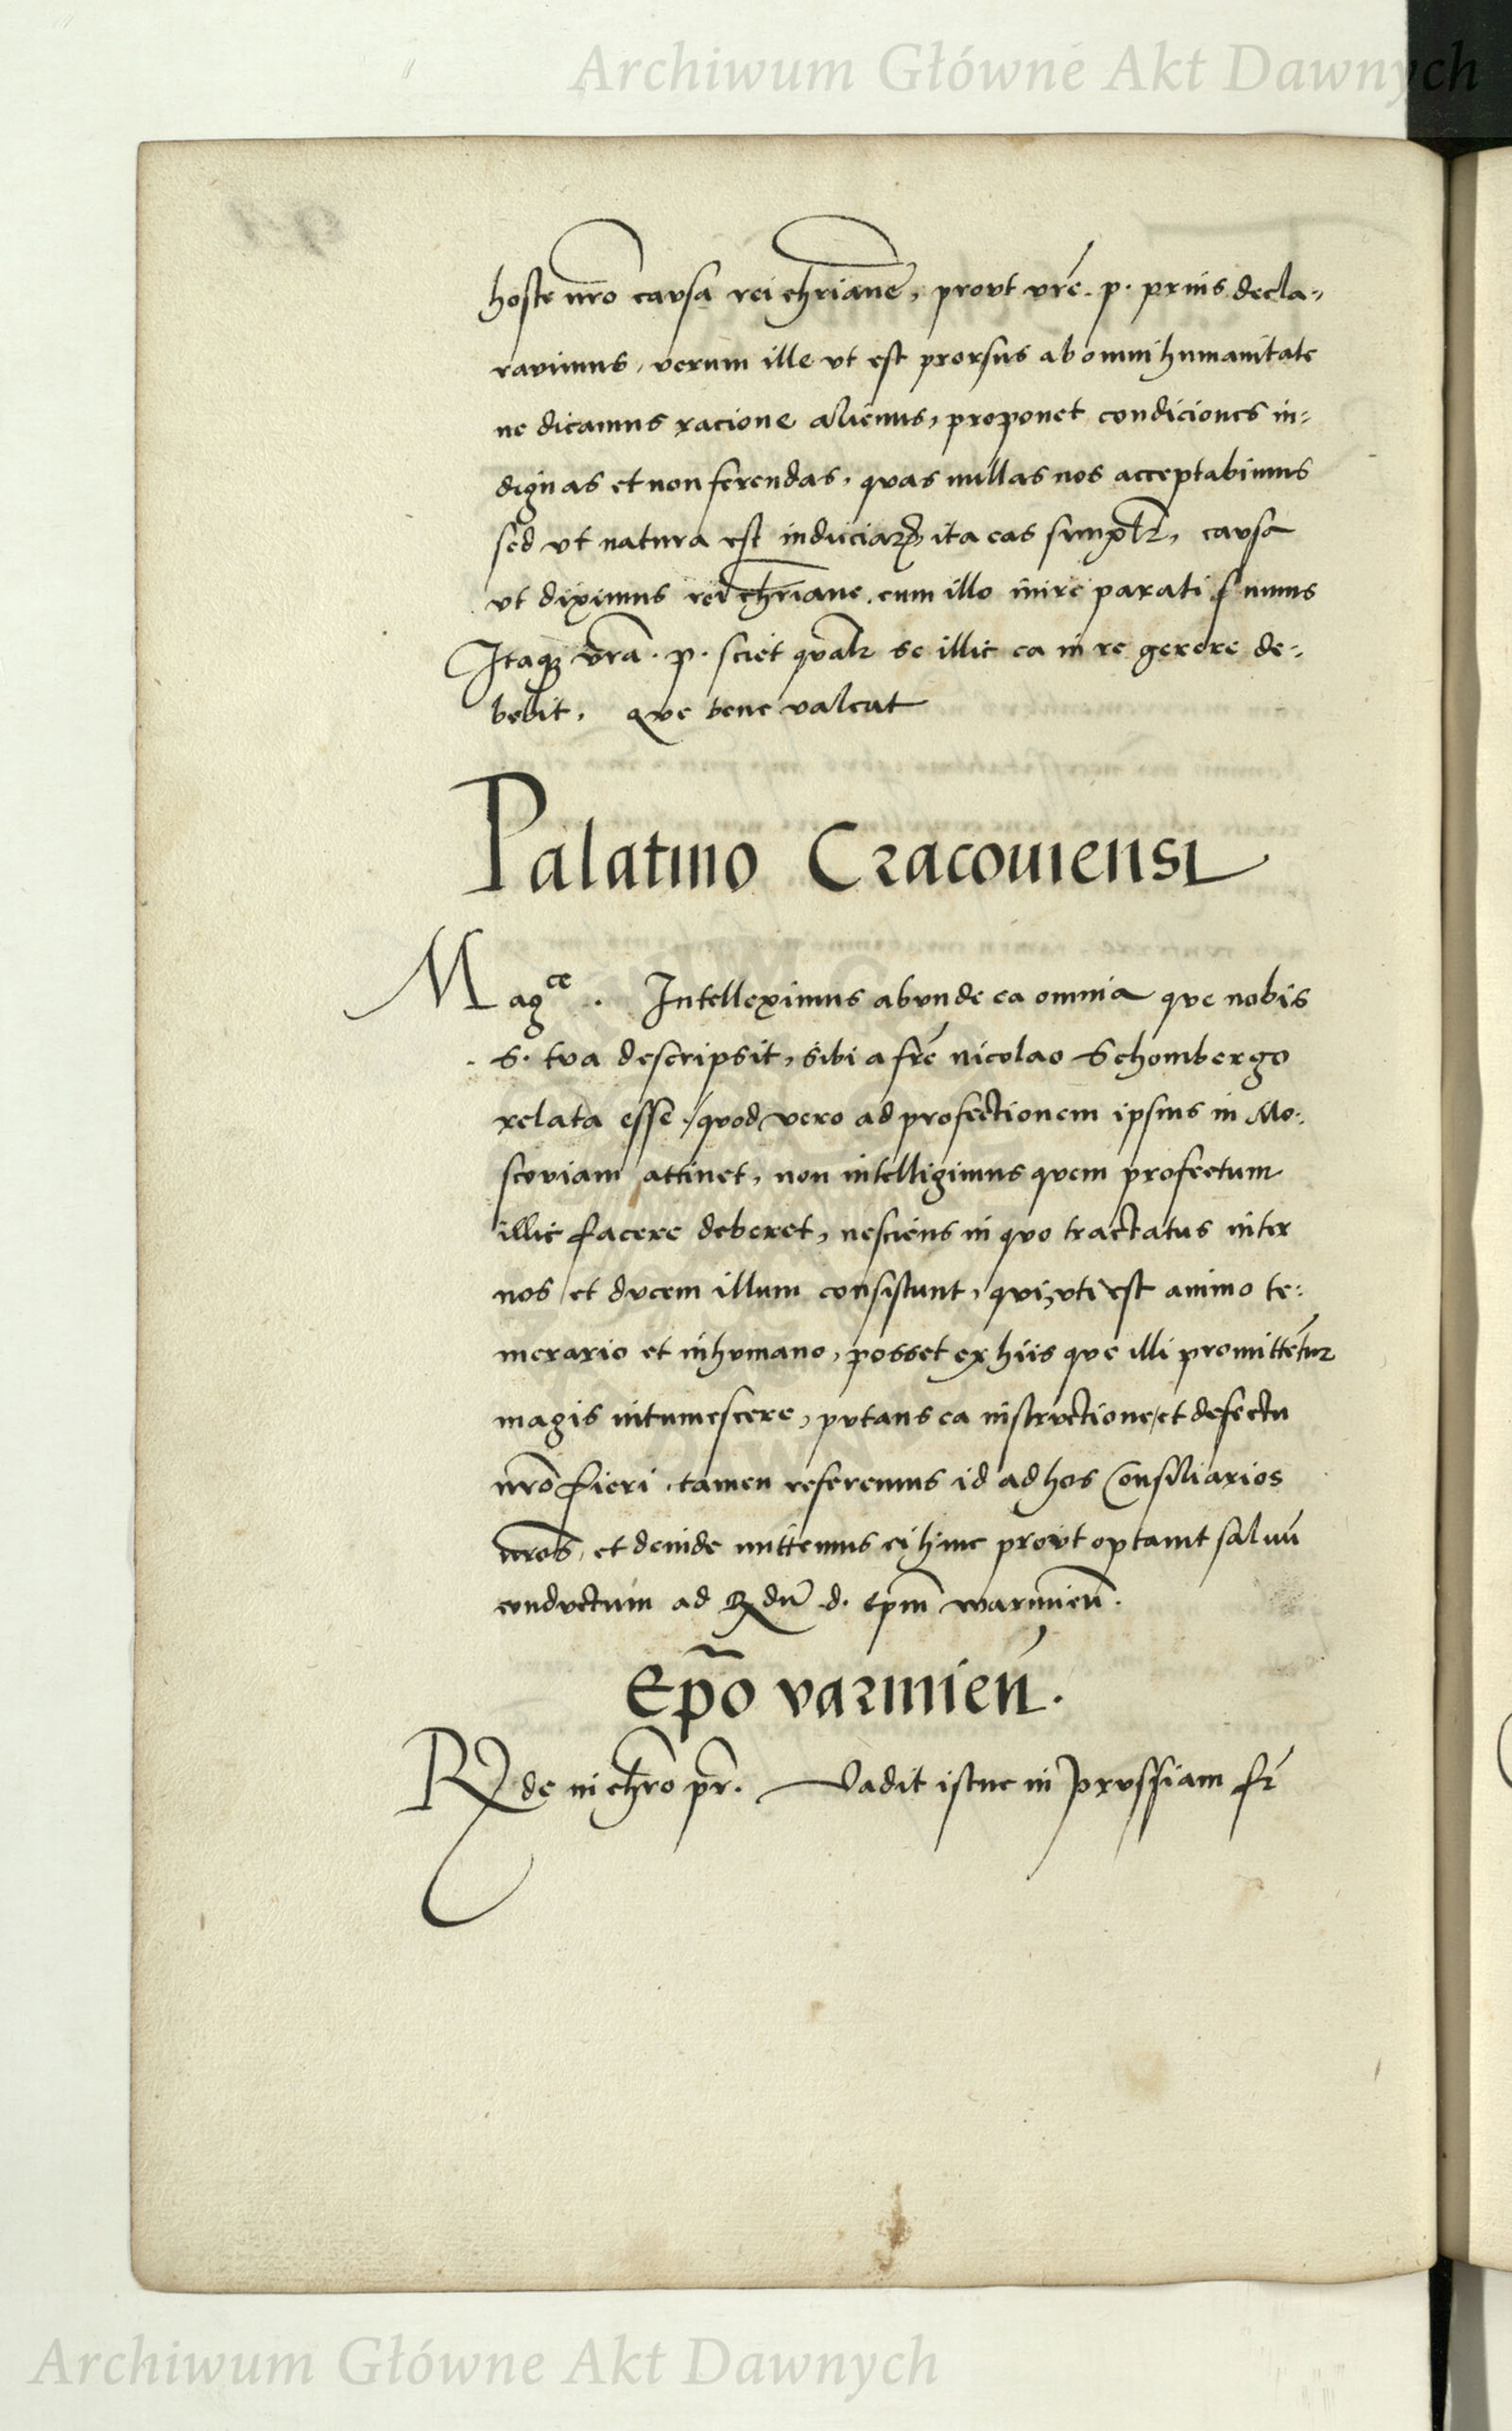 Archiwum Główne Akt Dawnych
hoste nr̃o causa rei chr̃iane, prout vr̃e. p. prius decla-
rauimus, verum ille vt est prorsus ab omni humanitate
ne dicamus racione alienus, proponet condiciones in-
dignas et non ferendas, quas nullas nos acceptabimus
sed vt natura est induciarꝝ ita eas simplr̃, causa
vt diximus rei chr̃iane cum illo inire parati sumus
Itaqꝫ vr̃a. p. sciet qualr̃ se illic ea in re gerere de-
bebit. que bene valeat
Palatino Cracouiensi
Magce. Intelleximus abunde ea omnia que nobis
S. tua descripsit, sibi a frẽ nicolao Schombergo
relata esse, quod vero ad profectionem ipsius in Mo-
scouiam attinet, non intelligimus quem profectum
illic facere deberet, nesciens in quo tractatus inter
nos et ducem illum consistunt, qui, vti est animo te-
merario et inhumano, posset ex hiis que illi promittẽtur
magis intumescere, putans ea instructione et defectu
nr̃o fieri, tamen referemus id ad hos Consiliarios
nr̃os, et deinde mittemus ei hinc prout optauit saluũ
conductum ad R dũ d. ep̃m warmieñ.
Ep̃o varmieñ.
Rde in chr̃o pr̃. Vadit istuc in Prussiam fr̃
Archiwum Główne Akt Dawnych